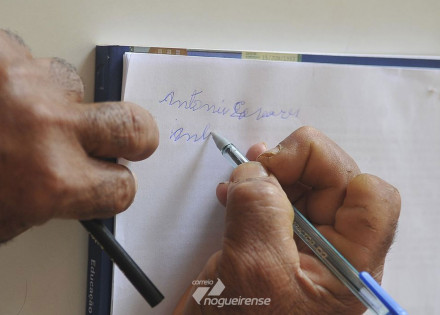 Antônio Tavares
Ant
Educação
correio
nogueirense